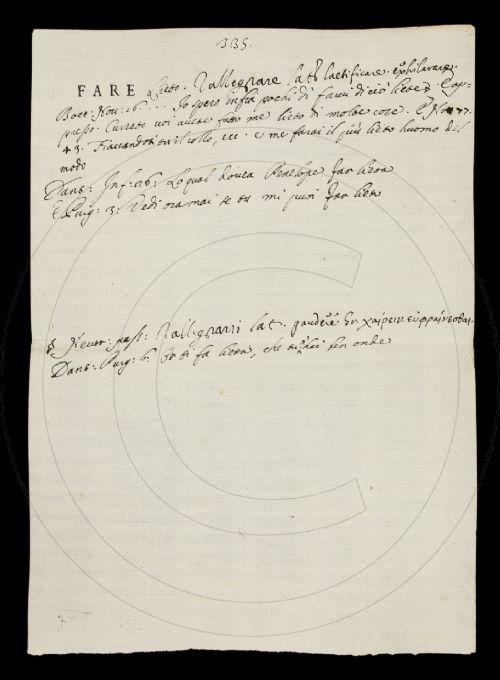 335.
FARE Lieto. Rallegrare lat. laetificare. exhilarare.
Bocc: Nov: 16. Io spero infra pochi dì farvi di ciò lieto
presso. Currado voi avete fatto me lieto di molte cose. E Nov. 77.
43. Fiaccandoti tu il collo, ecc. e me farai il più lieto huomo del
modo
Dant: Inf: 26. Lo qual dovea Penelope far lieta
E Purg: 3. Vedi oramai se tu mi puoi far lieto
§ Neutr: pass: Rallegrarsi lat. gaudere gr. χαίρειν. εὐφραίνεσθαι.
Dant: Purg: 6. Or ti fa lieta, che tu hai ben onde